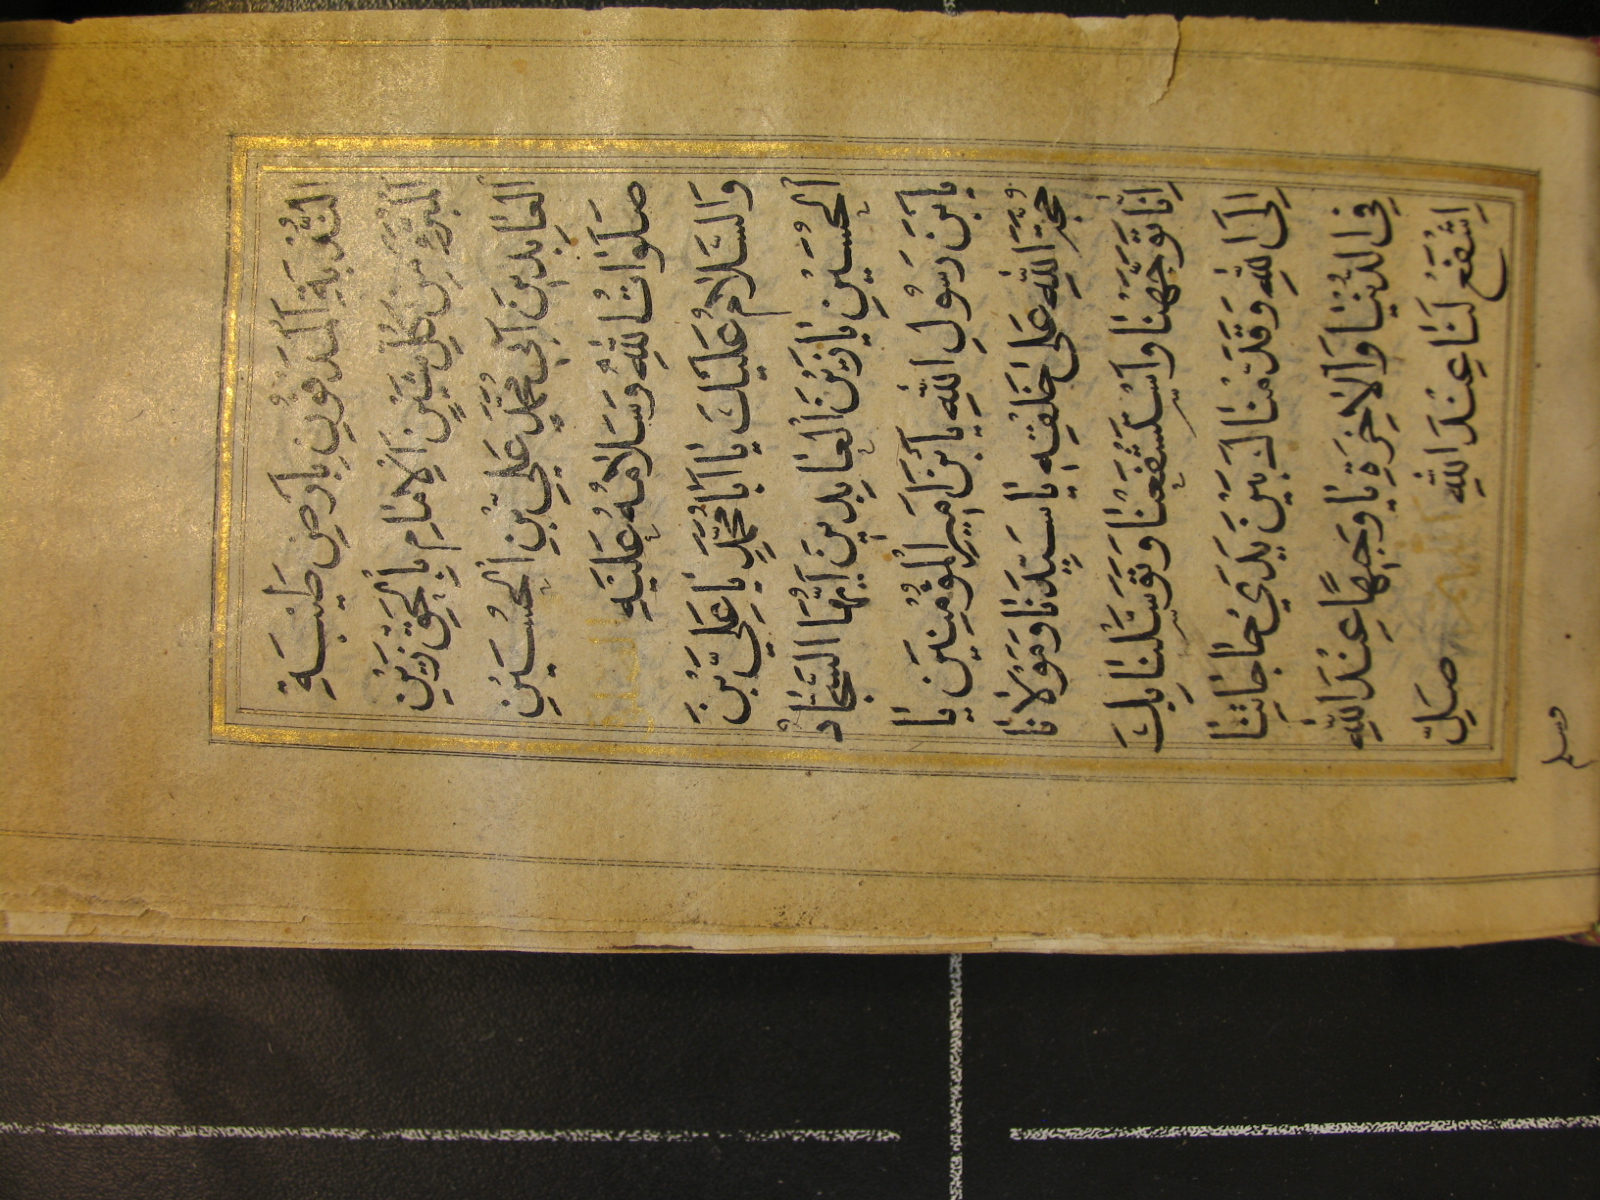 النُّدْبَةِ الْمَدْفُونِ بِاَرْضِ طَيْبَةِ
الْمُبَرَّءِ مِنْ كُلِّ شَيْنٍ الْاِمَامِ بِالْحَقِّ زَيْنِ
الْعَابِدِينَ اَبِي مُحَمَّدٍ عَلِيِّ بْنِ الْحُسَيْنِ
صَلَوَاتُ اللّٰهِ وَسَلَامُهُ عَلَيْهِ
وَالسَّلَامُ عَلَيْكَ يَا اَبَا مُحَمَّدٍ يَا عَلِيَّ بْنَ
الْحُسَيْنِ يَا زَيْنَ الْعَابِدِينَ اَيُّهَا السَّجَّادُ
يَابْنَ رَسُولِ اللّٰهِ يَابْنَ اَمِيرِ الْمُؤْمِنِينَ يَا
حُجَّةَ اللّٰهِ عَلَى خَلْقِهِ يَا سَيِّدَنَا وَمَوْلَانَا
اِنَّا تَوَجَّهْنَا وَاسْتَشْفَعْنَا وَتَوَسَّلْنَا بِكَ
اِلَى اللّٰهِ وَقَدَّمْنَاكَ بَيْنَ يَدَيْ حَاجَاتِنَا
فِي الدُّنْيَا وَالْاٰخِرَةِ يَا وَجِيهًا عِنْدَ اللّٰهِ
اِشْفَعْ لَنَا عِنْدَ اللّٰهِ اللهم صَلِّ
وسلم